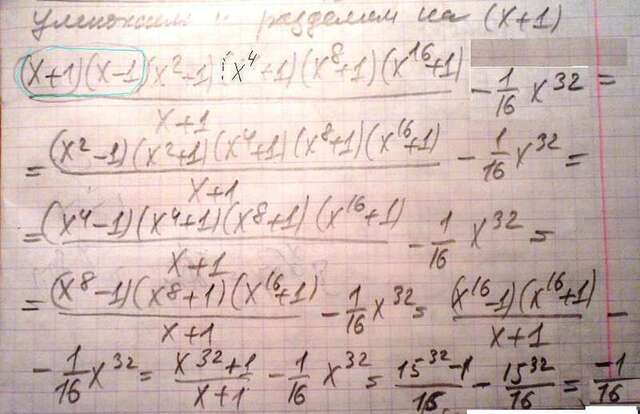 умножим и разделим на (x+1)
(x+1)(x-1)(x²+1)(x⁴+1)(x⁸+1)(x¹⁶+1)/x+1 - 1/16 x³² =
= (x²-1)(x²+1)(x⁴+1)(x⁸+1)(x¹⁶+1)/x+1 - 1/16 x³² =
= (x⁴-1)(x⁴+1)(x⁸+1)(x¹⁶+1)/x+1 - 1/16 x³² =
= (x⁸-1)(x⁸+1)(x¹⁶+1)/x+1 - 1/16 x³² = (x¹⁶-1)(x¹⁶+1)/x+1 -
- 1/16 x³² = x³²+1/x+1 - 1/16 x³² = 15³²-1/16 - 15³²/16 = -1/16